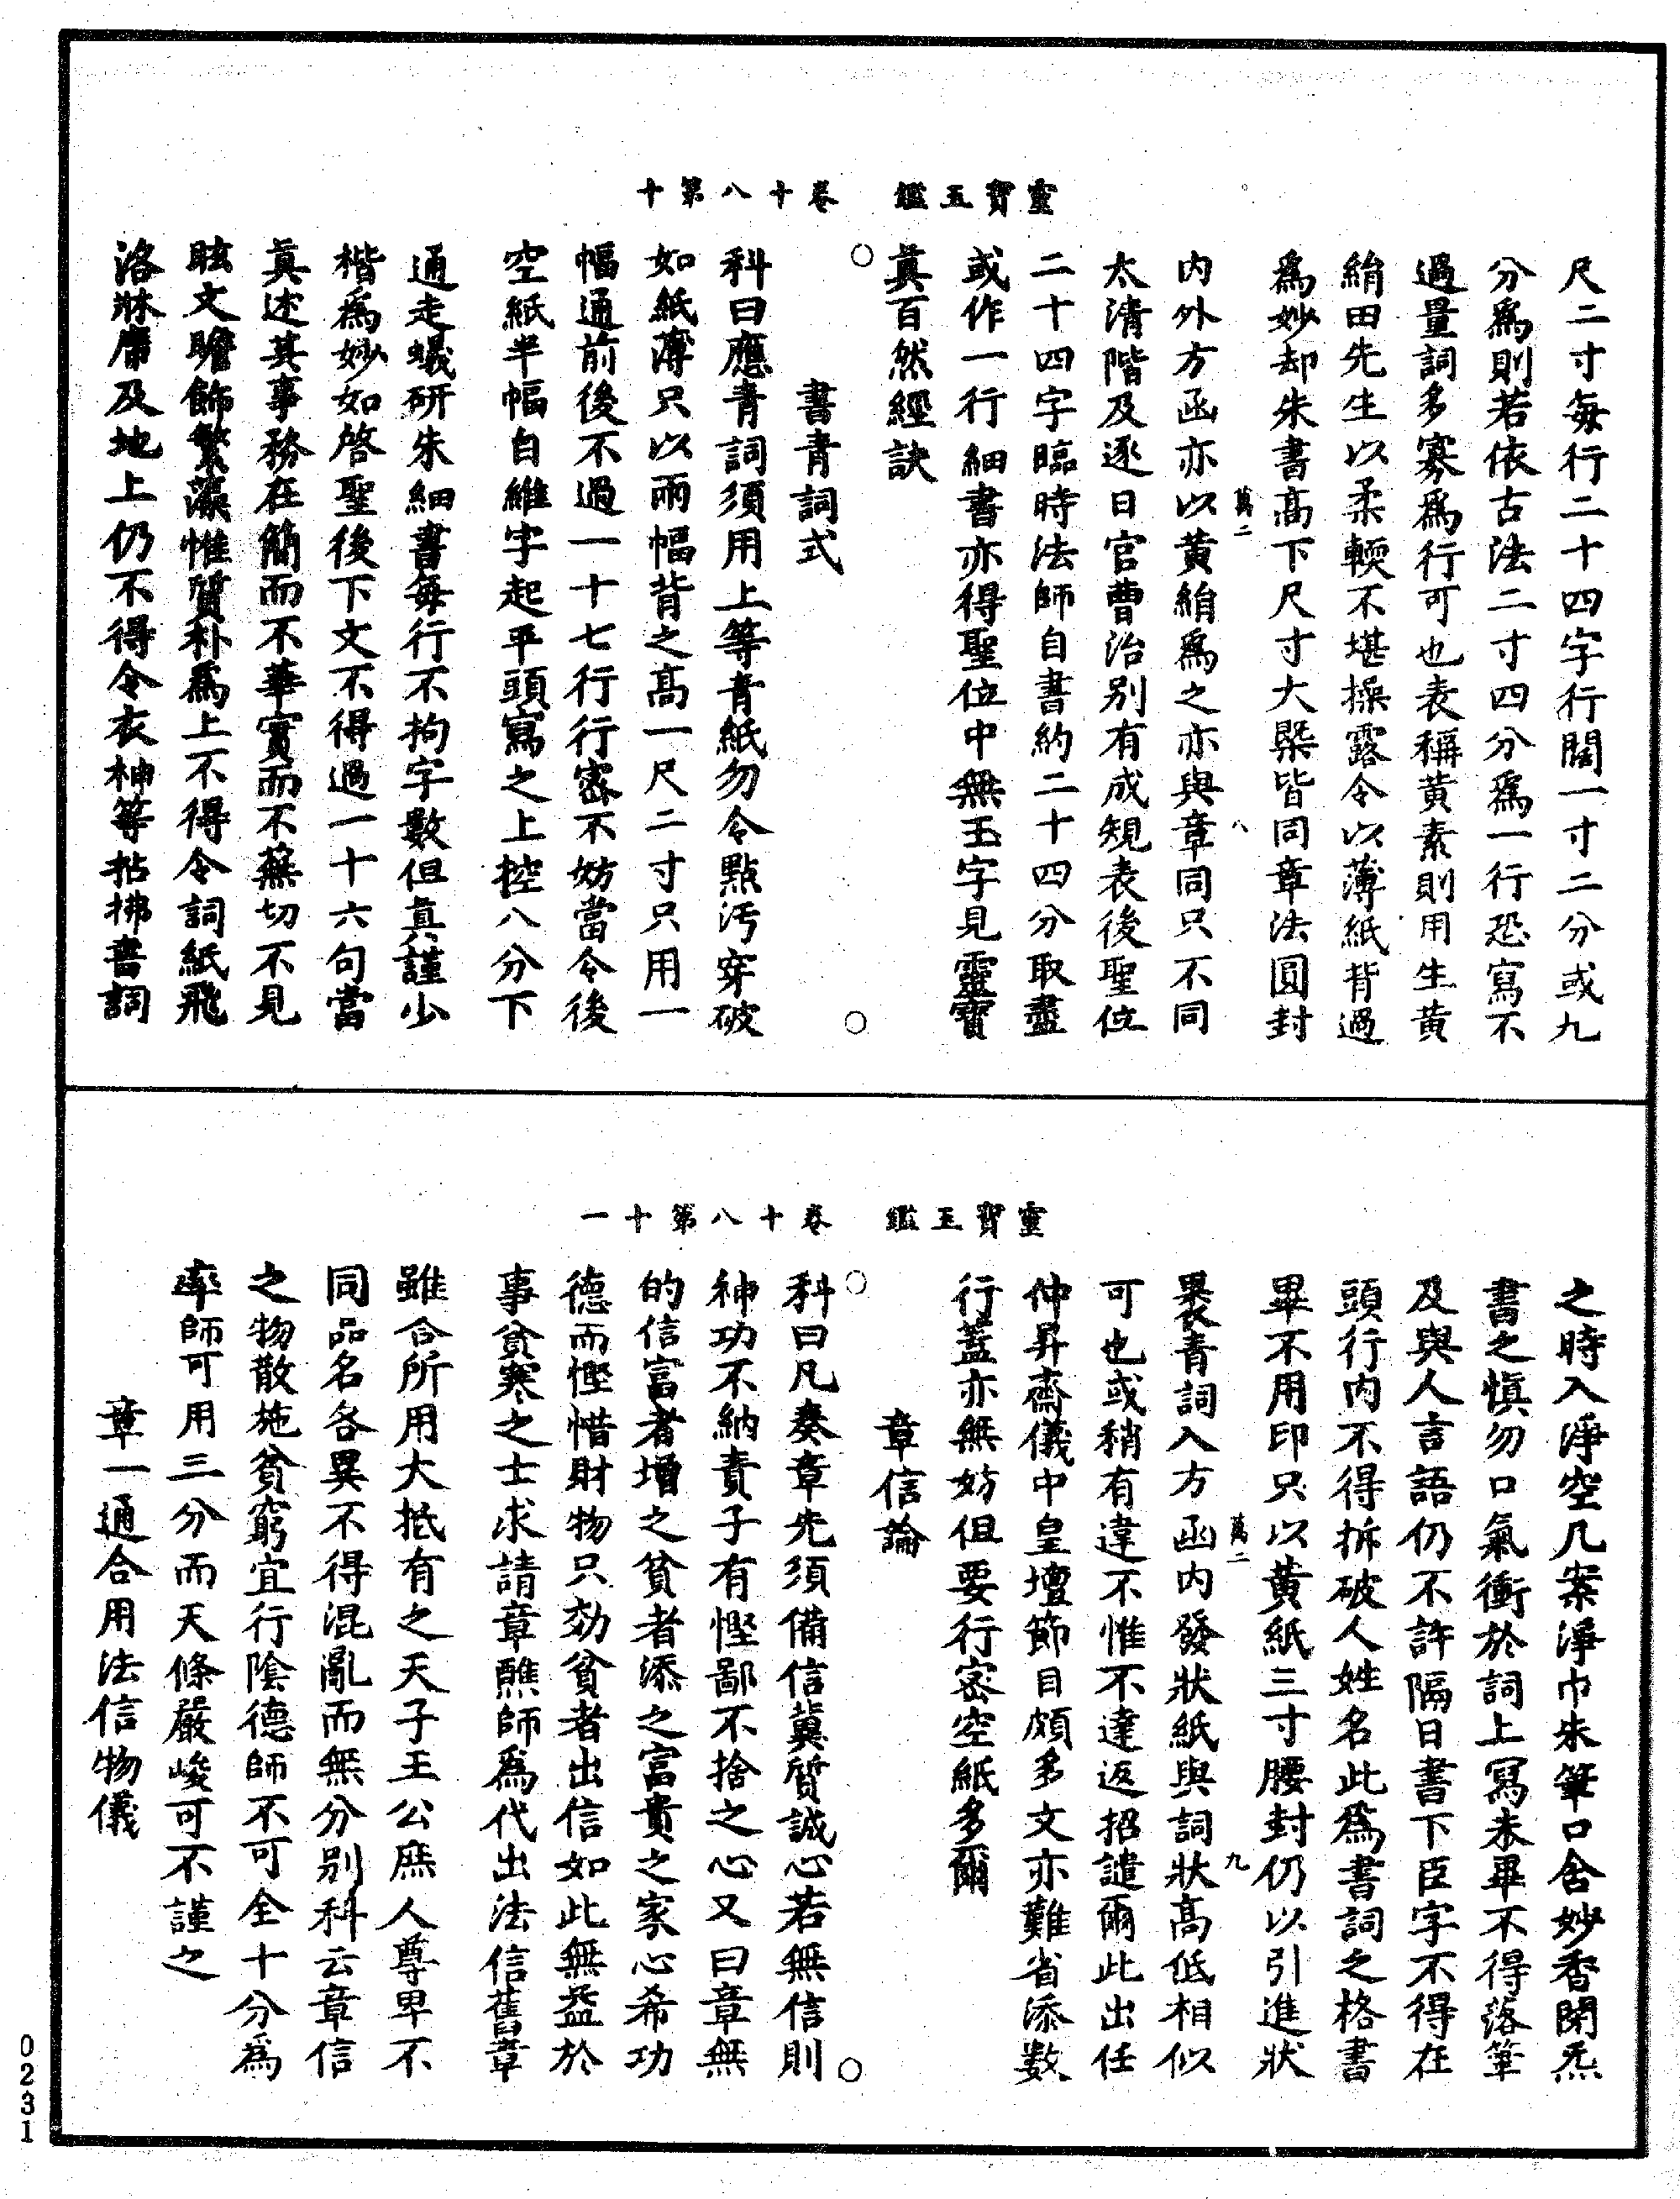 靈寶玉鑑　卷十八第十
尺二寸每行二十四字行闊一寸二分或九
分爲則若依古法二寸四分爲一行恐寫不
過量詞多寡爲行可也表稱黃素則用生黃
絹田先生以柔輭不堪操露令以薄紙背過
爲妙却朱書高下尺寸大槩皆同章法圓封
萬二　八
內外方函亦以黃絹爲之亦與章同只不同
太清階及逐日官曹治別有成規表後聖位
二十四字臨時法師自書約二十四分取盡
或作一行細書亦得聖位中無玉字見靈寶
眞百然經訣
○　○
書青詞式
科曰應青詞須用上等青紙勿令點汚穿破
如紙薄只以兩幅背之高一尺二寸只用一
幅通前後不過一十七行行密不妨當令後
空紙半幅自維字起平頭寫之上控八分下
通走蟻硏朱細書每行不拘字數但真謹少
楷爲妙如啓聖後下文不得過一十六句當
眞述其事務在簡而不華實而不蕪切不見
眩文瞻飾繁藻惟質朴爲上不得令詞紙飛
洛牀席及地上仍不得令衣袖等拈拂書詞
靈寶玉鑑　卷十八第十一
之時入淨空几案淨巾朱筆口含妙香閉炁
書之愼勿口氣衝於詞上寫未畢不得落筆
及與人言語仍不許隔日書下臣字不得在
頭行內不得拆破人姓名此爲書詞之格書
畢不用印只以黃紙三寸腰封仍以引進狀
萬二　九
褁青詞入方函內發狀紙與詞狀高低相似
可也或稍有違不惟不達返招譴爾此出任
仲昇齋儀中皇壇節目頗多文亦難省添數
行蓋亦無妨但要行密空紙多爾
章信論
○　○
科曰凡奏章先須備信冀質誠心若無信則
神功不納責子有慳鄙不捨之心又曰章無
的信富者增之貧者添之富貴之家心希功
德而慳惜財物只効貧者出信如此無益於
事貧寒之士求請章醮師爲代出法信舊章
雖合所用大抵有之天子王公庶人尊卑不
同品名各異不得混亂而無分別科云章信
之物散施貧窮宜行陰德師不可全十分爲
率師可用三分而天條嚴峻可不謹之
章一通合用法信物儀
0231